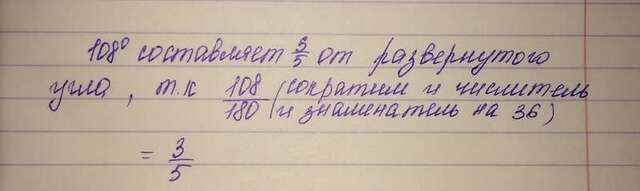 108° составляет 3/5 от развернутого
угла, т.к 108/180 (сократим и числитель
и знаменатель на 36)
= 3/5